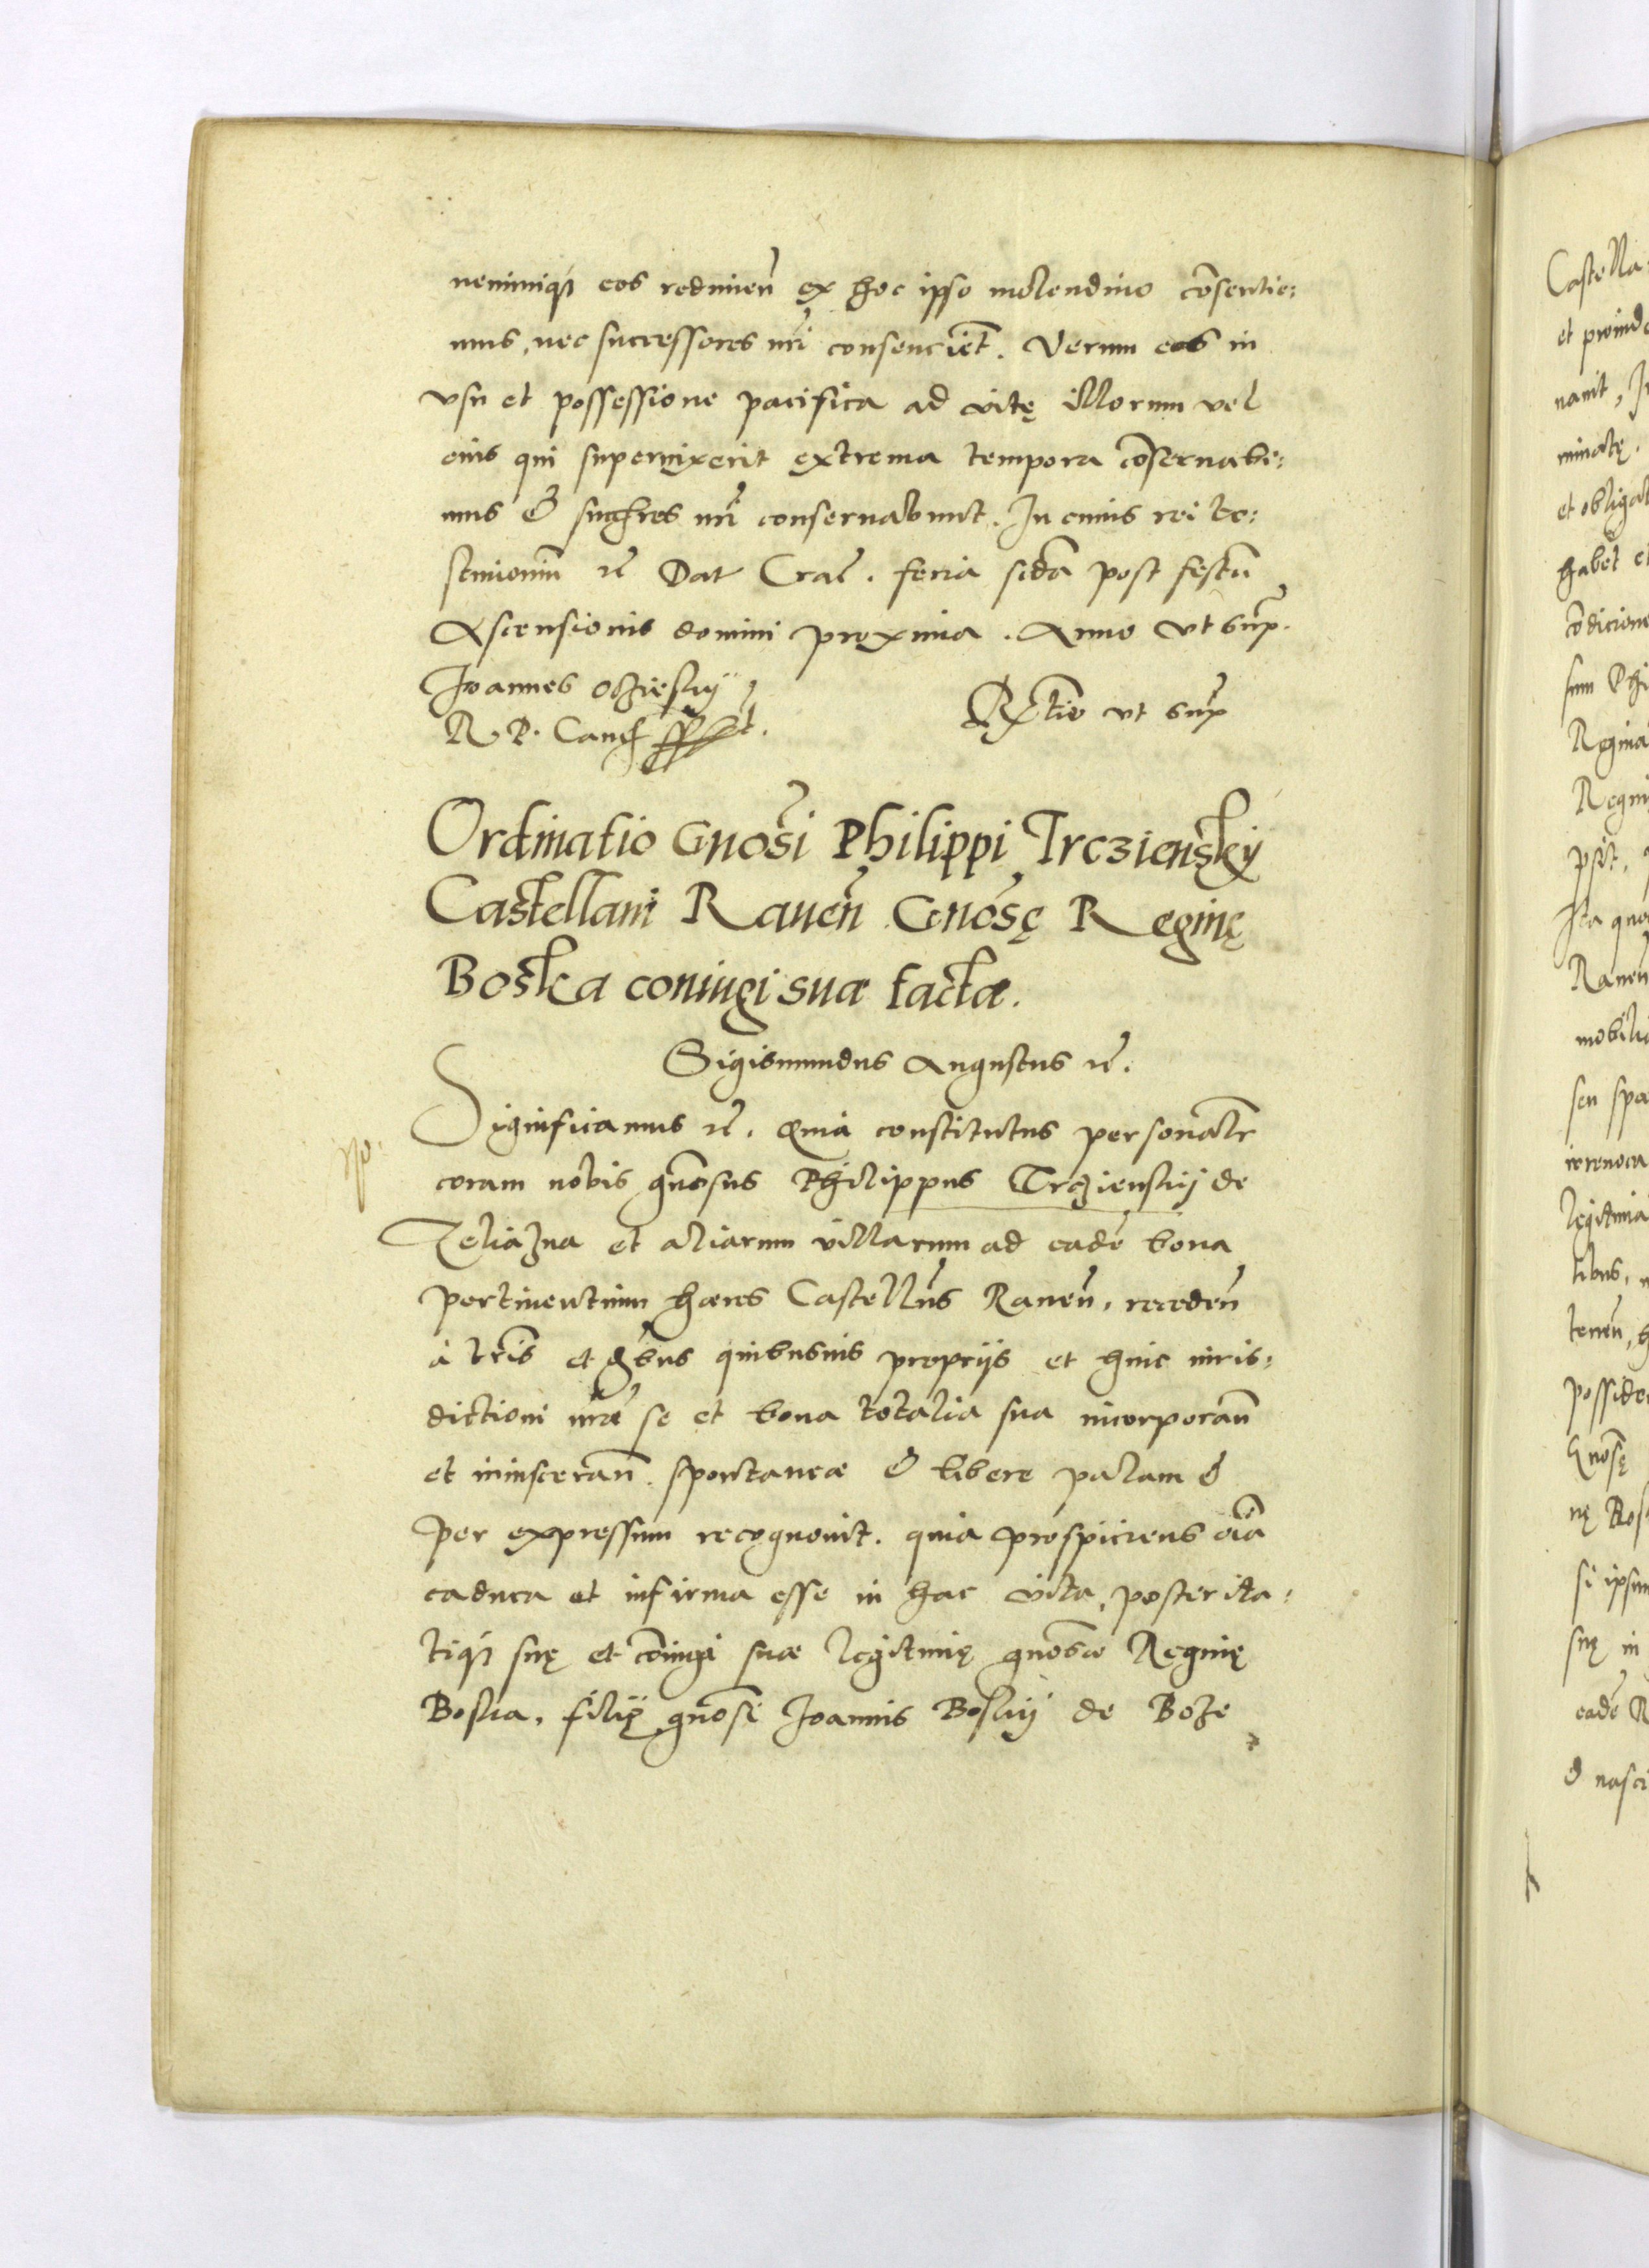 neminiq3 eos redimen̄ ex hoc ipso molendino cōsentie:
mus, nec successores nr̄i consencient̄. Verum eos in
vsu et possessione pacifica ad vitę illorum vel
eius qui superuixerit extrema tempora cōseruabi:
mus & succ̄res nr̄i conseruabunt. In cuius rei te:
stimoniū rc̄ Dat Crac̄. feria scđa post festū
Ascensionis domini proxima. Anno vt supr̄.
Joannes Oczieskij
R. P. Canc̄ sspt.
Rel̄tio vt supr̄
Ordinatio Gnōsi Philippi Trczienskij
Castellani Rauen̄ Gnōsę Reginę
Boska coniugi suæ factæ.
Sigismundus Augustus rc̄.
Significamus rc̄. Quia constitutus personalr̄
coram nobis gn̄osus Philippus Trczienskij de
Zeliazna et aliarum villarum ad eadē bona
pertinentium hæres Castelln̄us Rauen̄, receden̄
à tr̄ris et gr̄bus quibusuis proprijs et huic iuris:
dictioni nr̄æ se et bona totalia sua incorporan̄
et inuisceran̄. spontaneæ & libere palam &
per expressum recognouit. quia prospiciens oīa
caduca et infirma esse in hac vita, posterita:
tiq3 suę et cōiugi suæ legitimę gn̄osæ Reginę
Boska, filię gn̄osi Joannis Boskij de Boże
Castella
et proinde
nauit, In
minatę.
et obligat
habet et
cōdicione
sum Phi
Regina
Regni
Ita quo
Rauen̄
mobilia
seu spa
irreuoca
legitima
tibus,
posside
Gnōsę
nę Bos
si ipsum
suę in
eadē R
& nasci